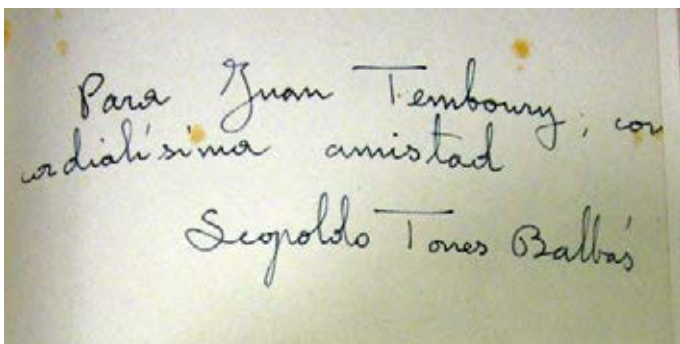 Para Juan Temboury, con
cordialísima amistad
Leopoldo Torres Balbás